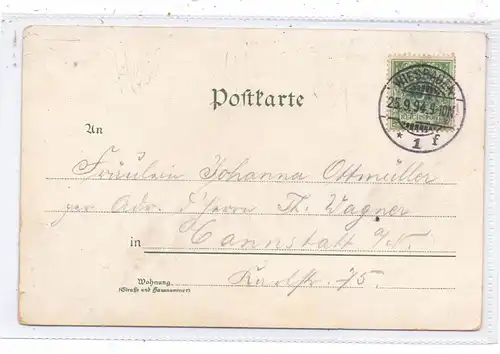 WIESBADEN
25.9.94.9-10N.
* 1 f
Postkarte
An
Fräulein Johanna Ottmüller
per Adr. d'Herrn Th. Wagner
in Cannstatt a/N.
Karlstr. 75.
Wohnung
(Straße und Hausnummer)